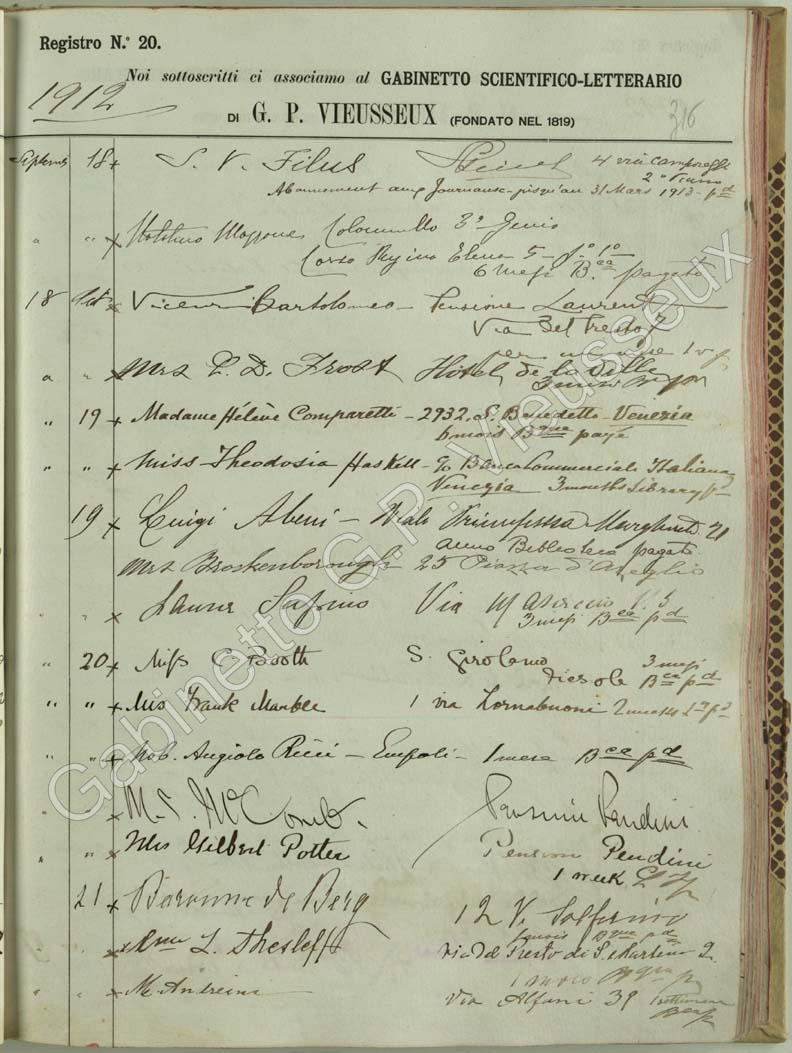 Registro N.º 20.
Noi sottoscritti ci associamo al GABINETTO SCIENTIFICO-LETTERARIO
1912
DI G. P. VIEUSSEUX (FONDATO NEL 1819)
316
18 S. V. Filus 4 via Camporeggi
2º Piano
Abonnement aux Journaux jusqu'au 31 Mars 1913 - pd
" " Mazzone Colonnello 3º Genio
Corso Regina Elena 5 - pº 1º
6 mesi Bca pagato
18 Bartolomeo - Pensione Laurent
Via del Presto 7
" " Mrs L. D. Frost Hotel de la Ville
" 19 Madame Hélène Comparetti - 2932, S. Benedetto - Venezia
6 mois Bque payé
" " Miss Theodosia Haskell - c/o Banca Commerciale Italiana
Venezia 3 months Library
19 Luigi Abeni - Viale Principessa Margherita 21
anno Biblioteca pagato
Mrs Brockenborough 25 Piazza d'Azeglio
" Laura Via
3 mesi Bca pd
" 20 Miss C. Booth S. Girolamo 3 mesi
Fiesole Bca pd
" " Mrs Frank Marble 1 via Tornabuoni
" " Nob. Angiolo Ricci - Empoli - 1 mese Bca pd
" M. S. McComb. Pension Pendini
" " Mrs Gilbert Potter Pension Pendini
1 week
21 Baronne de Berg 12 V. Solferino
Bque pd
Mme L. Thesleff via del Presto di S. Martino 2
1 mois Bque
" " M. Andreini Via Alfani 39 1 settimana
Gabinetto G.P. Vieusseux